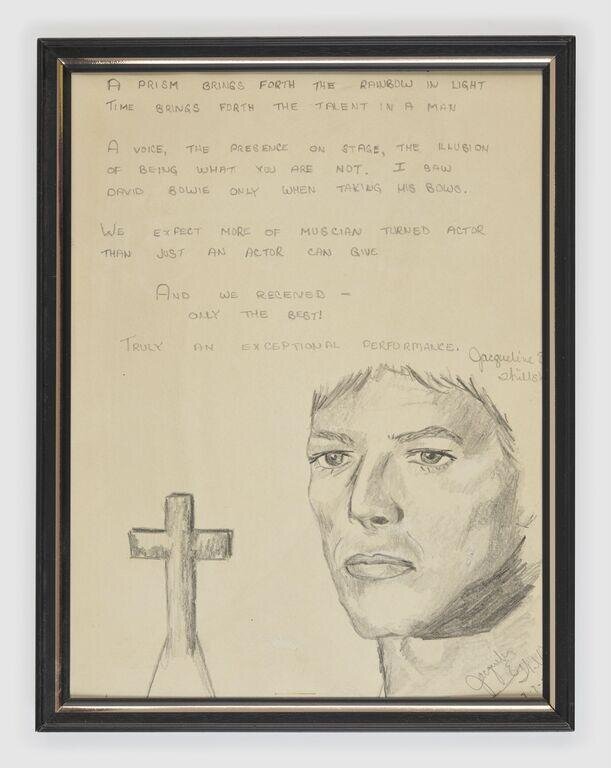 A PRISM BRINGS FORTH THE RAINBOW IN LIGHT
TIME BRINGS FORTH THE TALENT IN A MAN
A VOICE, THE PRESENCE ON STAGE, THE ILLUSION
OF BEING WHAT YOU ARE NOT. I SAW
DAVID BOWIE ONLY WHEN TAKING HIS BOWS.
WE EXPECT MORE OF MUSCIAN TURNED ACTOR
THAN JUST AN ACTOR CAN GIVE
AND WE RECEIVED —
ONLY THE BEST!
TRULY AN EXCEPTIONAL PERFORMANCE.
Jacqueline